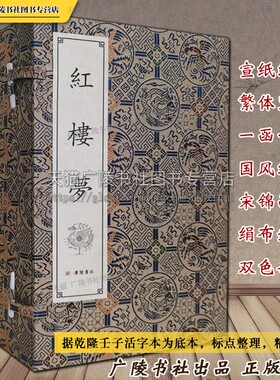 广陵书社图书专营店
紅樓夢
廣陵書社
天猫广陵书社图书专营店
宣纸
繁体
一函
国风
宋锦
绢布
双色
据乾隆壬子活字本为底本，标点整理，精
广陵书社出品 正版